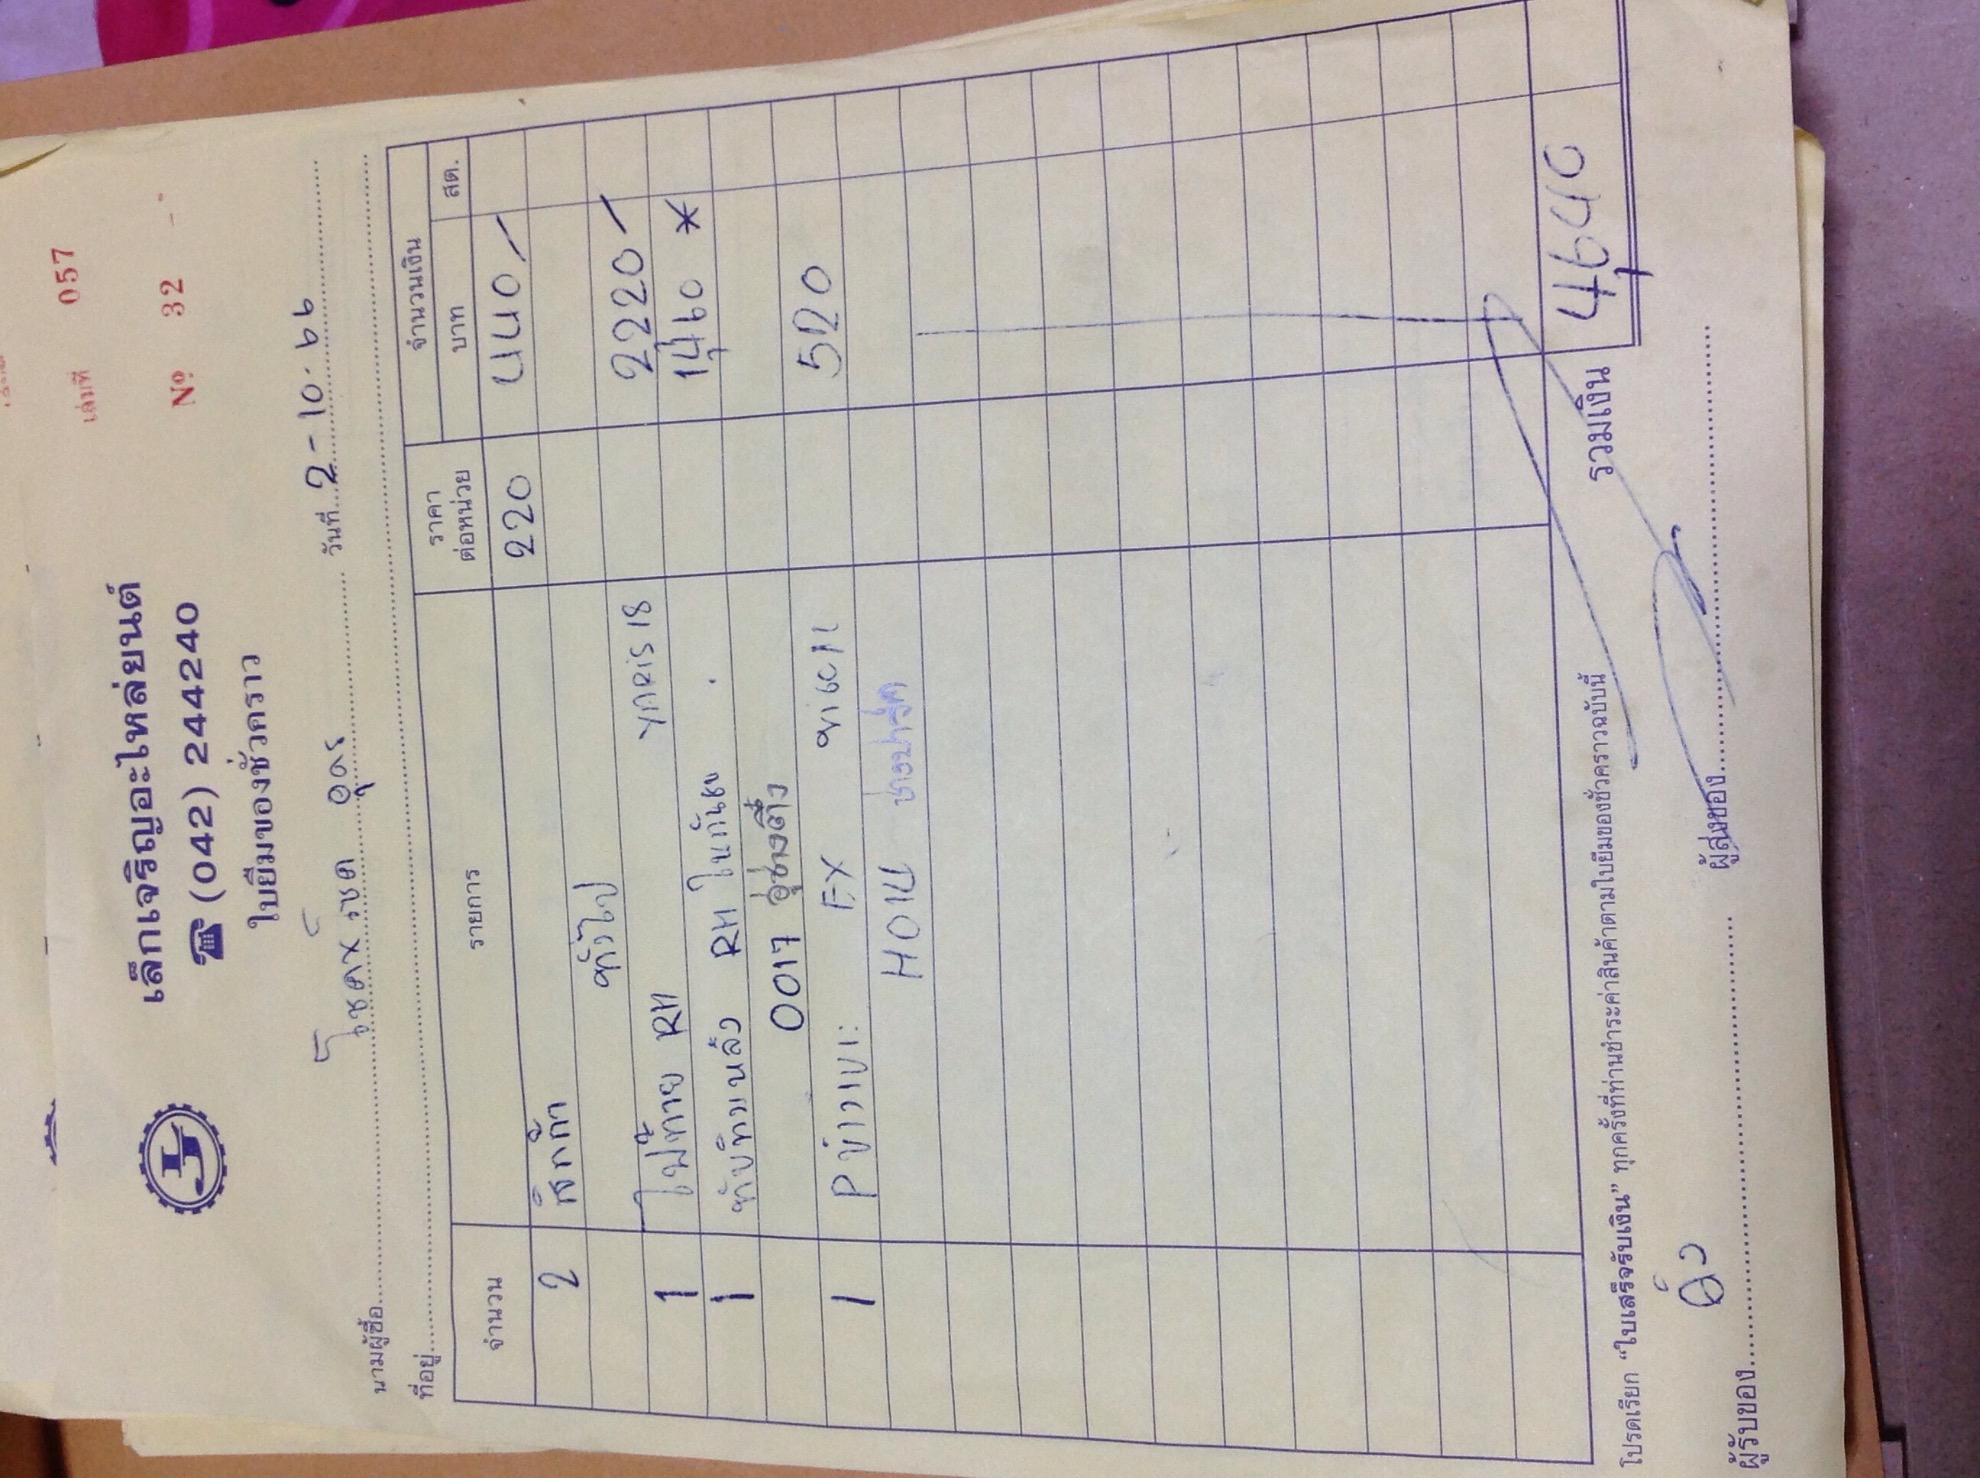 เล่มที่ 057
เล็กเจริญอะไหล่ยนต์
☎ (042) 244240
№ 32
ใบยืมของชั่วคราว
วันที่ 2-10-66
นามผู้ซื้อ โชคxโชค อุดร
ที่อยู่
จำนวน รายการ ราคาต่อหน่วย จำนวนเงิน
บาท สต.
2 กิ๊กก๊ก 220 440 /
ทั่วไป
1 ไฟท้าย RH YARIS 18 2220 /
1 ทับทิมหลัง RH ในกันชน 1460 *
0017 อู่ช่างติ่ง
1 P ข่าวเบาะ EX 520
HOIU
รวมเงิน 4640
โปรดเรียก “ใบเสร็จรับเงิน” ทุกครั้งที่ท่านชำระค่าสินค้าตามใบยืมของชั่วคราวฉบับนี้
ผู้รับของ ผู้ส่งของ